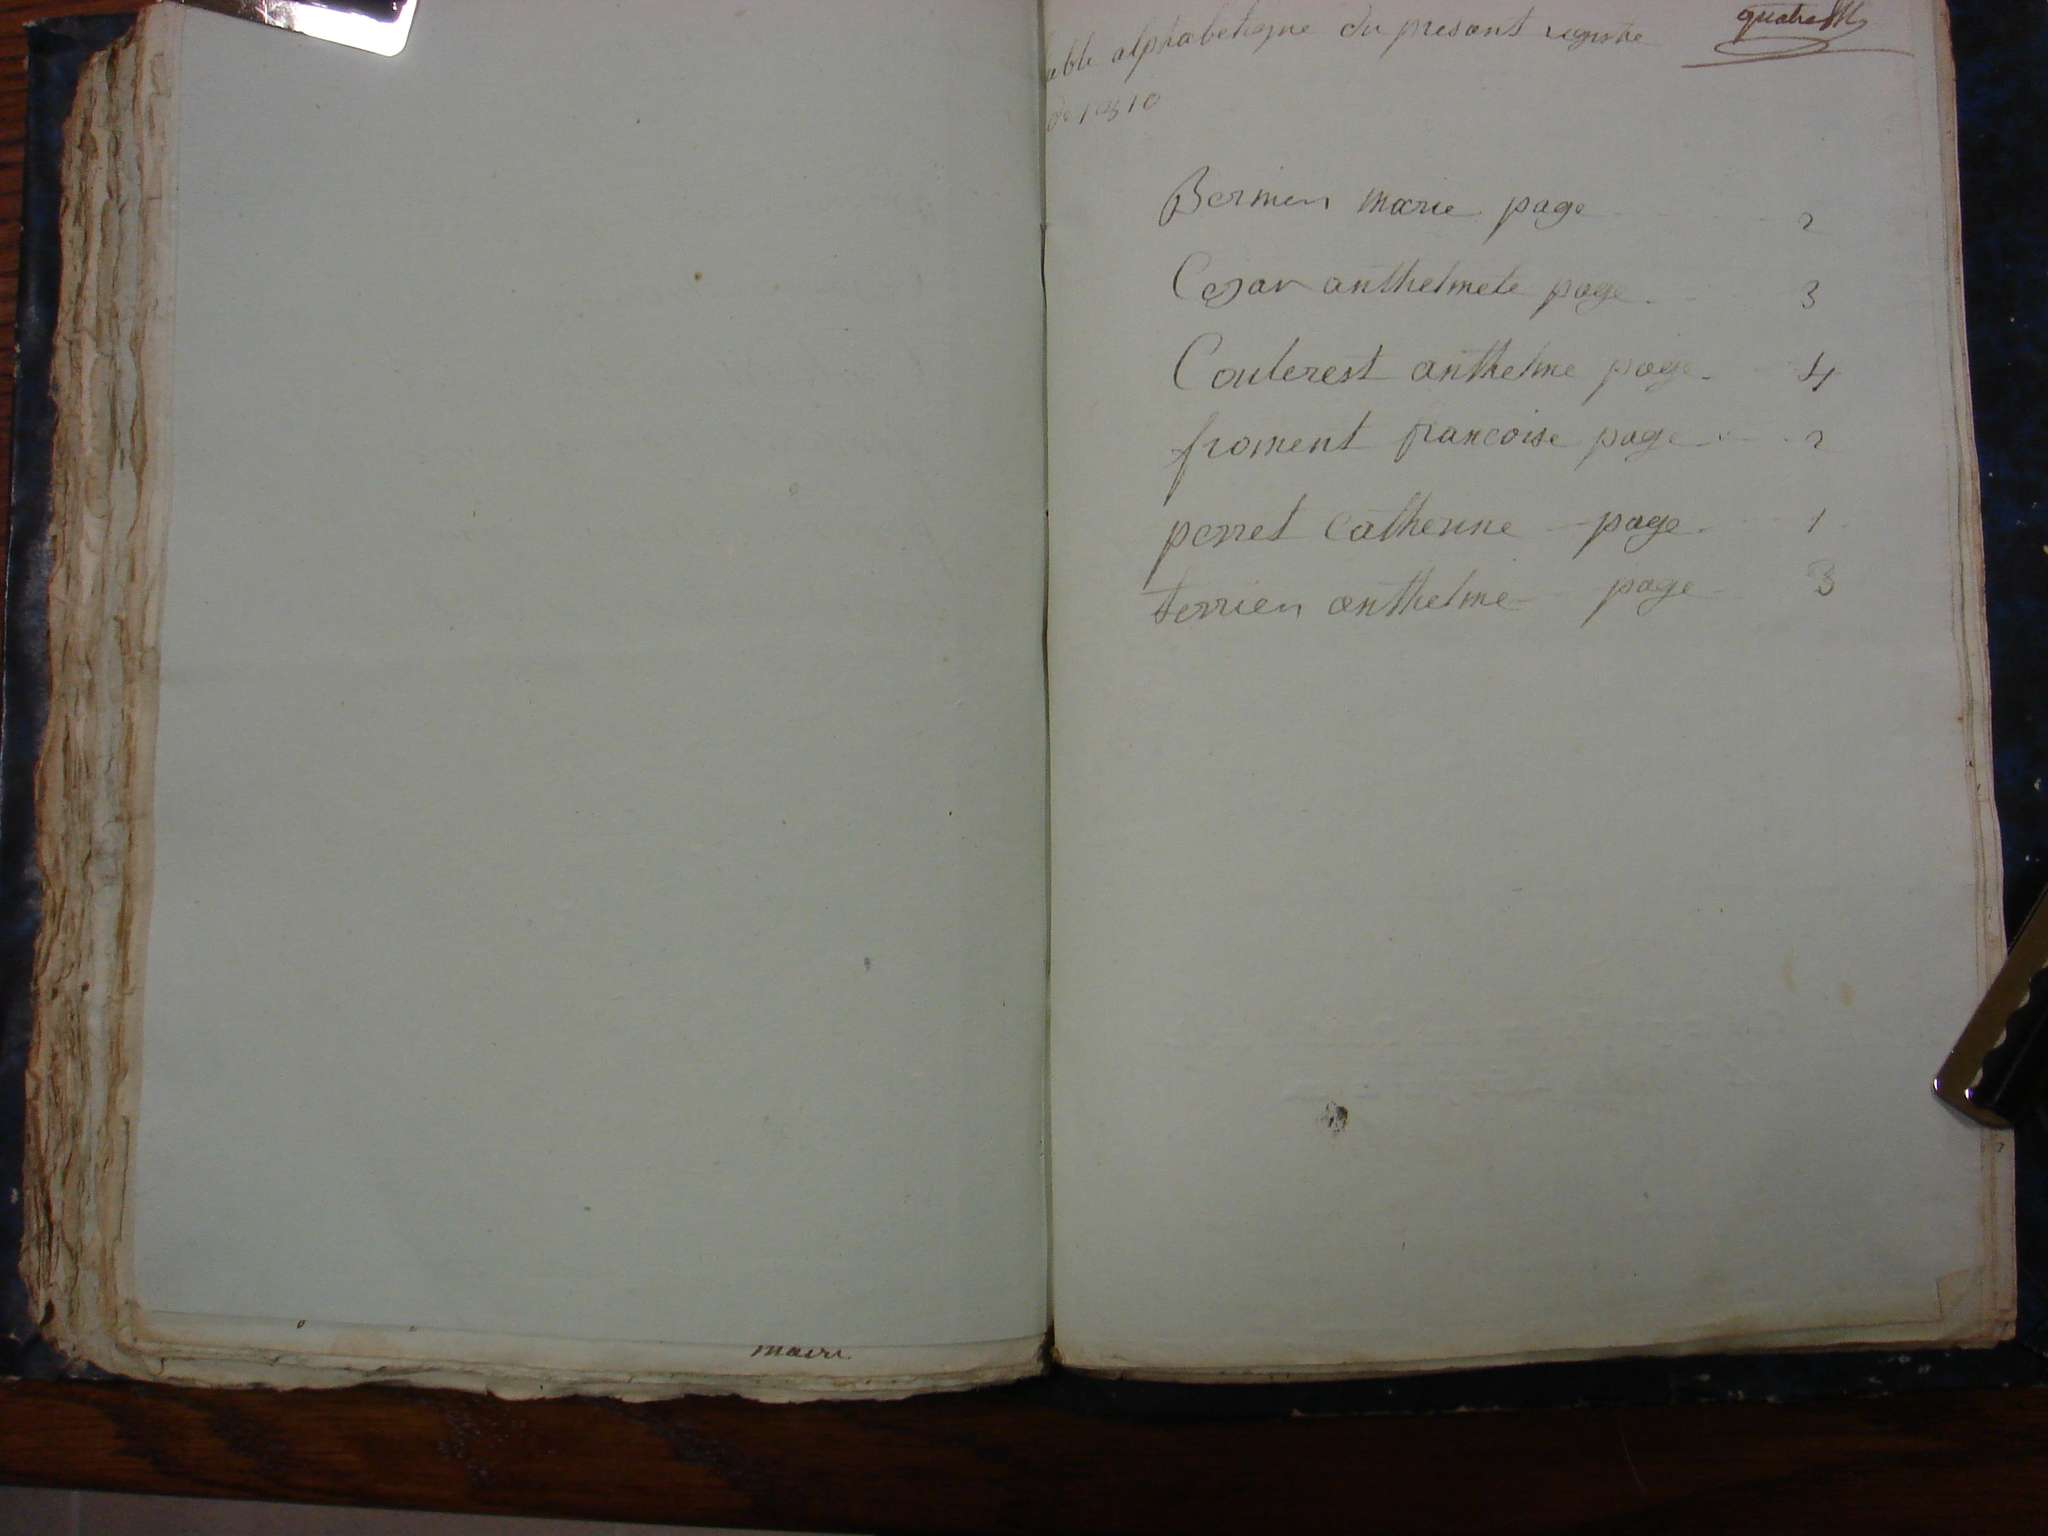 able alphabetique du present registre
Bermen marie page 2
Cesar anthelmete page 3
Couterest anthelme page 4
froment francoise page 2
perret Catherine page 1
terrien anthelme page 3
maire